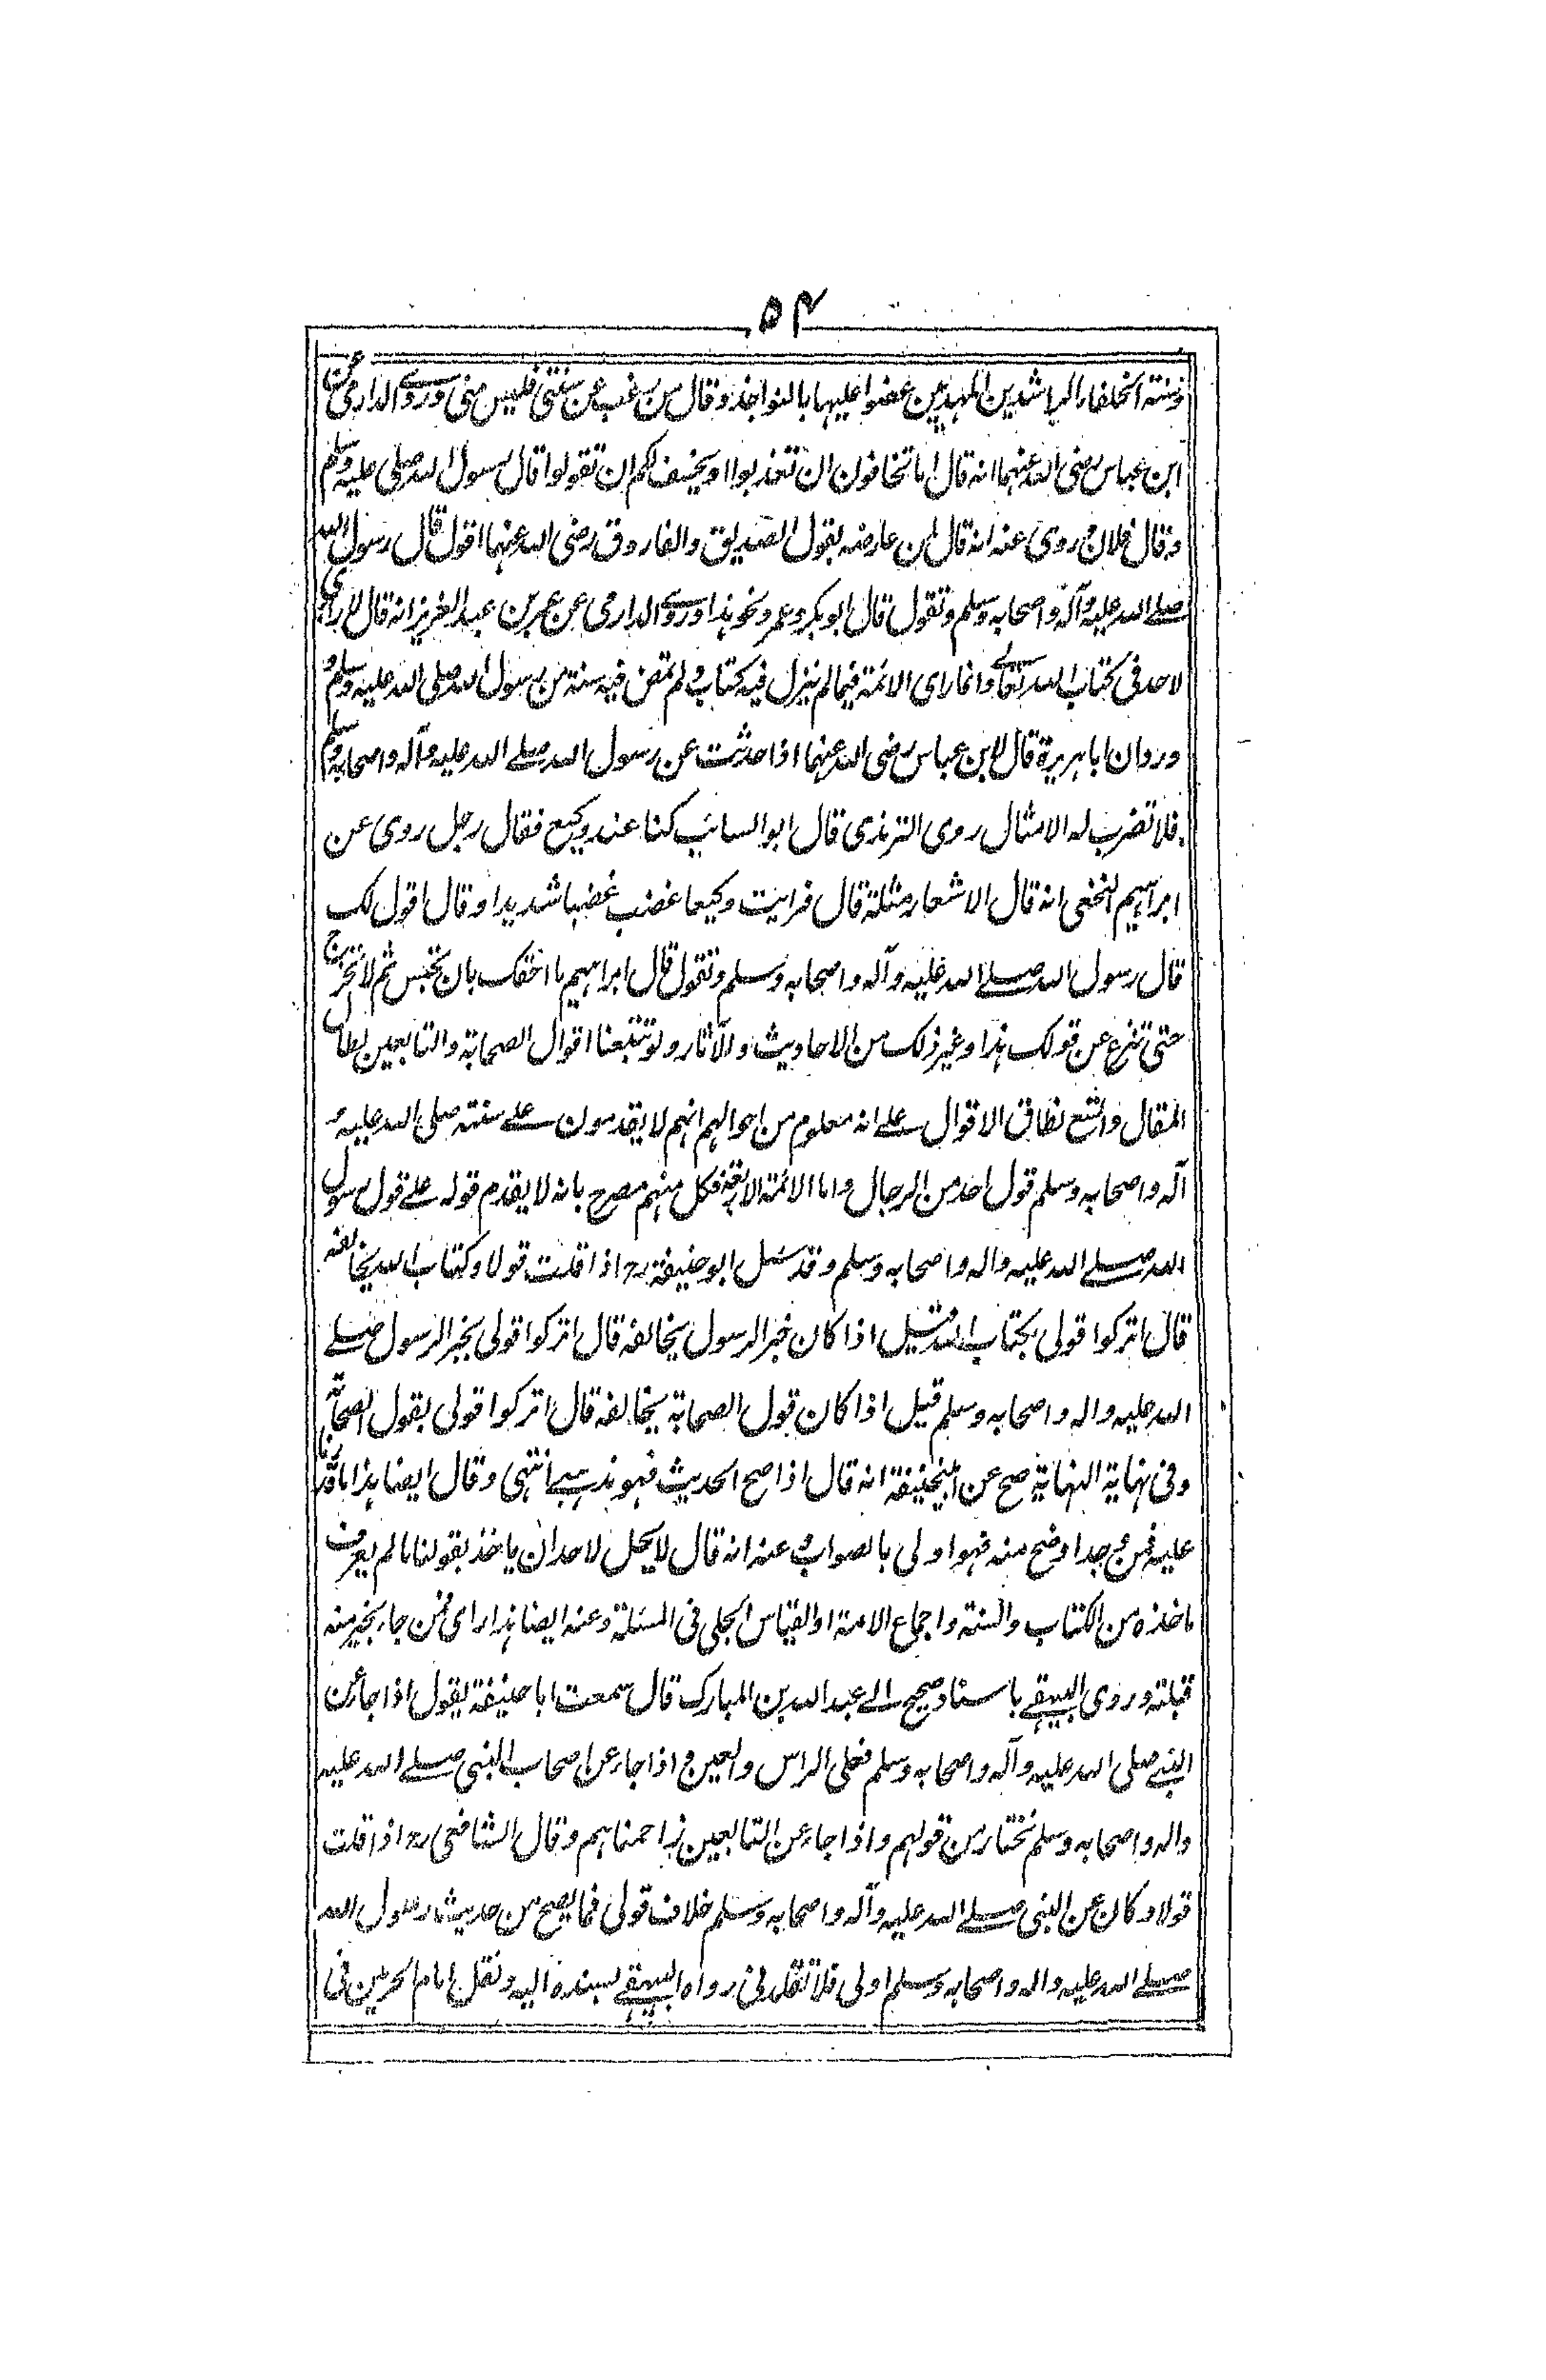 ۵۴
وسنة الخلفاء الراشدين المهديين عضوا عليها بالنواجذ وقال من رغب عن سنتى فليس منى وروى الدارمى عن
ابن عباس رضى الله عنهما انه قال اما تخافون ان تعذبوا او يخسف بكم ان تقولوا قال رسول الله صلى عليه وسلم
وقال فلان وروى عنه انه قال لمن عارضه بقول الصديق والفاروق رضى الله عنهما اقول قال رسول الله
صلے الله عليه وآله واصحابه وسلم وتقول قال ابو بكر وعمر ونحو هذا وروى الدارمى عن عمر بن عبد العزيز انه قال لا رأى
لاحد فى كتاب الله تعالے وانما راى الائمة فيما لم ينزل فيه كتاب ولم تمض فيه سنة من رسول الله صلى الله عليه وسلم
وروان ابا هريرة قال لابن عباس رضى الله عنهما اذا حدثت عن رسول الله صلے الله عليه وآله واصحابه وسلم
فلا تضرب له الامثال روى الترمذى قال ابو السائب كنا عند وكيع فقال رجل روى عن
ابراهيم النخعى انه قال الاشعار مثلة قال فرايت وكيعا غضب غضبا شديدا وقال اقول لك
قال رسول الله صلے الله عليه وآله واصحابه وسلم وتقول قال ابراهيم ما احقك بان تحبس ثم لا تخرج
حتى تنزع عن قولك هذا وغير ذلك من الاحاديث والآثار ولو تتبعنا اقوال الصحابة والتابعين لطال
المقال واتسع نطاق الاقوال علے انه معلوم من احوالهم انهم لا يقدمون علے سنته صلى الله عليه و
آله واصحابه وسلم قول احد من الرجال واما الائمة الاربعة فكل منهم مصرح بانه لا يقدم قوله علے قول رسول
الله صلے الله عليه واله واصحابه وسلم وقد سئل ابو حنيفة رح اذا قلت قولا وكتاب الله يخالفه
قال اتركوا قولى بكتاب الله قيل اذا كان خبر الرسول يخالفه قال اتركوا قولى بخبر الرسول صلے
الله عليه واله واصحابه وسلم قيل اذا كان قول الصحابة يخالفه قال اتركوا قولى بقول الصحابة
وفى نهاية النهاية صح عن ابيحنيفة انه قال اذا صح الحديث فهو مذهبے انتهى وقال ايضا هذا ما قدرنا
عليه فمن وجد اوضح منه فهو اولى بالصواب وعنه انه قال لا يحل لاحد ان ياخذ بقولنا ما لم يعرف
ماخذه من الكتاب والسنة واجماع الامة او القياس الجلى فى المسئلة وعنه ايضا هذا راى فمن جاء بخير منه
قبلته وروى البيهقے باسناد صحيح الے عبد الله بن المبارك قال سمعت ابا حنيفة يقول اذا جاء عن
النبے صلى الله عليه وآله واصحابه وسلم فعلى الراس والعين واذا جاء عن اصحاب النبى صلے الله عليه
واله واصحابه وسلم نختار من قولهم واذا جاء عن التابعين زاحمناهم وقال الشافعى رح اذا قلت
قولا وكان عن النبى صلے الله عليه وآله واصحابه وسلم خلاف قولى فما يصح من حديث رسول الله
صلے الله عليه واله واصحابه وسلم اولى فلا تقلدونى رواه البيهقے بسنده اليه ونقل امام الحرمين فى